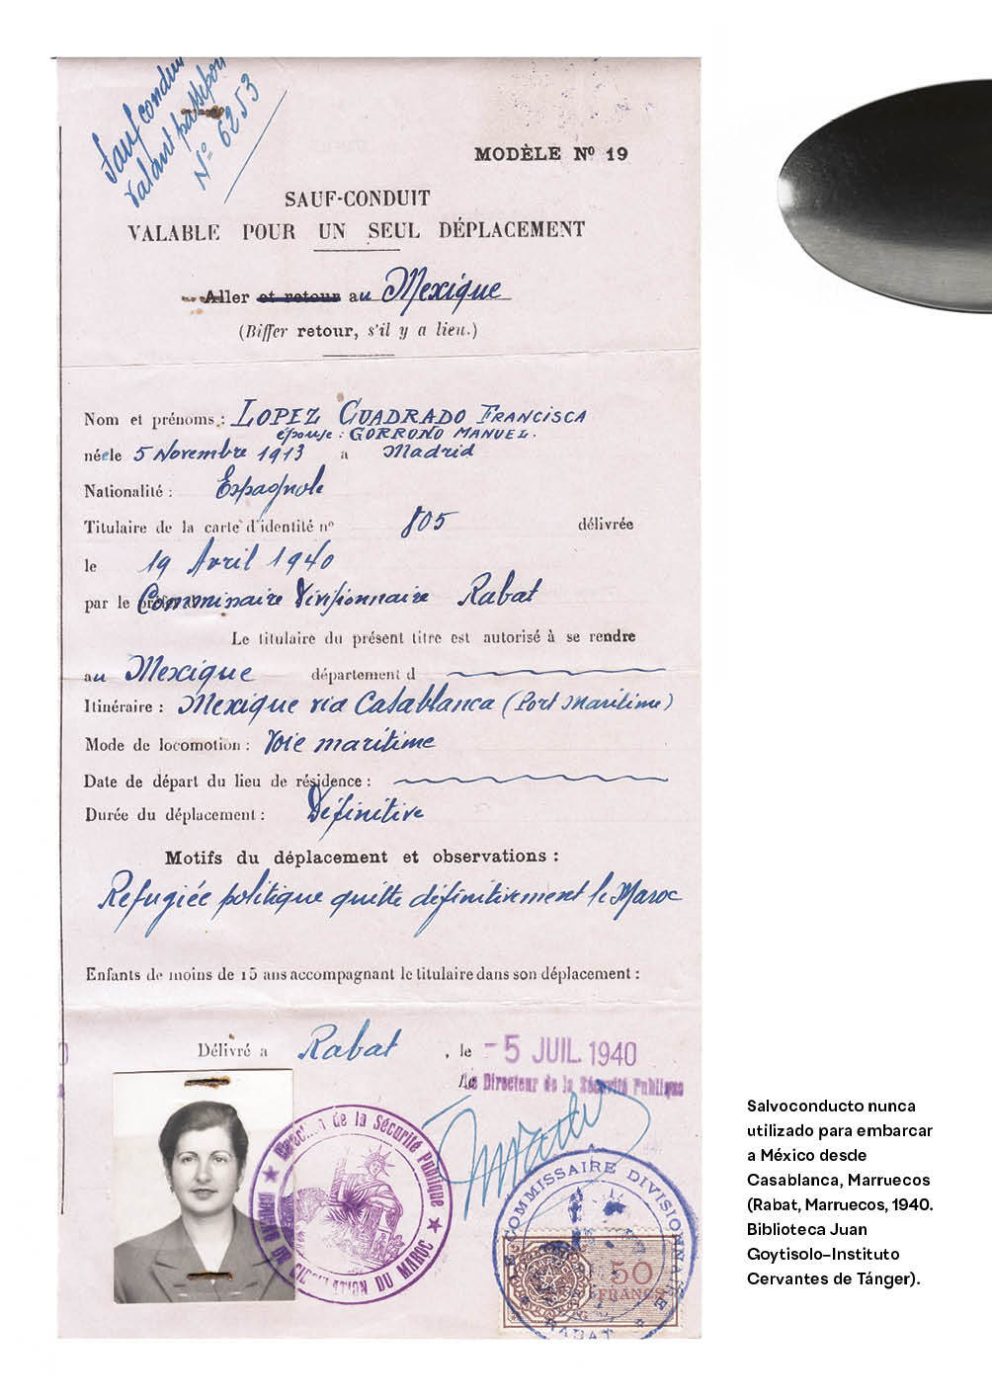 Sauf conduit
valant passeport
Nº 6253
MODÈLE Nº 19
SAUF-CONDUIT
VALABLE POUR UN SEUL DÉPLACEMENT
Aller et retour au Mexique
(Biffer retour, s'il y a lieu.)
Nom et prénoms : LOPEZ CUADRADO FRANCISCA
épouse : GORROÑO MANUEL.
née le 5 Novembre 1913 a Madrid
Nationalité : Espagnole
Titulaire de la carte d'identité nº 805 délivrée
le 19 Avril 1940
par le Commissaire Divisionnaire Rabat
Le titulaire du présent titre est autorisé à se rendre
au Mexique département d
Itinéraire : Mexique via Casablanca (Port Maritime)
Mode de locomotion : Voie maritime
Date de départ du lieu de résidence :
Durée du déplacement : Définitive
Motifs du déplacement et observations :
Refugiée politique quitte définitivement le Maroc
Enfants de moins de 15 ans accompagnant le titulaire dans son déplacement :
Délivré a Rabat, le -5 JUIL. 1940
Le Directeur de la Sécurité Publique
Direction de la Sécurité Publique
DE CIRCULATION DU MAROC
COMMISSAIRE DIVISIONNAIRE
RABAT
50
FRANCS
Salvoconducto nunca
utilizado para embarcar
a México desde
Casablanca, Marruecos
(Rabat, Marruecos, 1940.
Biblioteca Juan
Goytisolo-Instituto
Cervantes de Tánger).